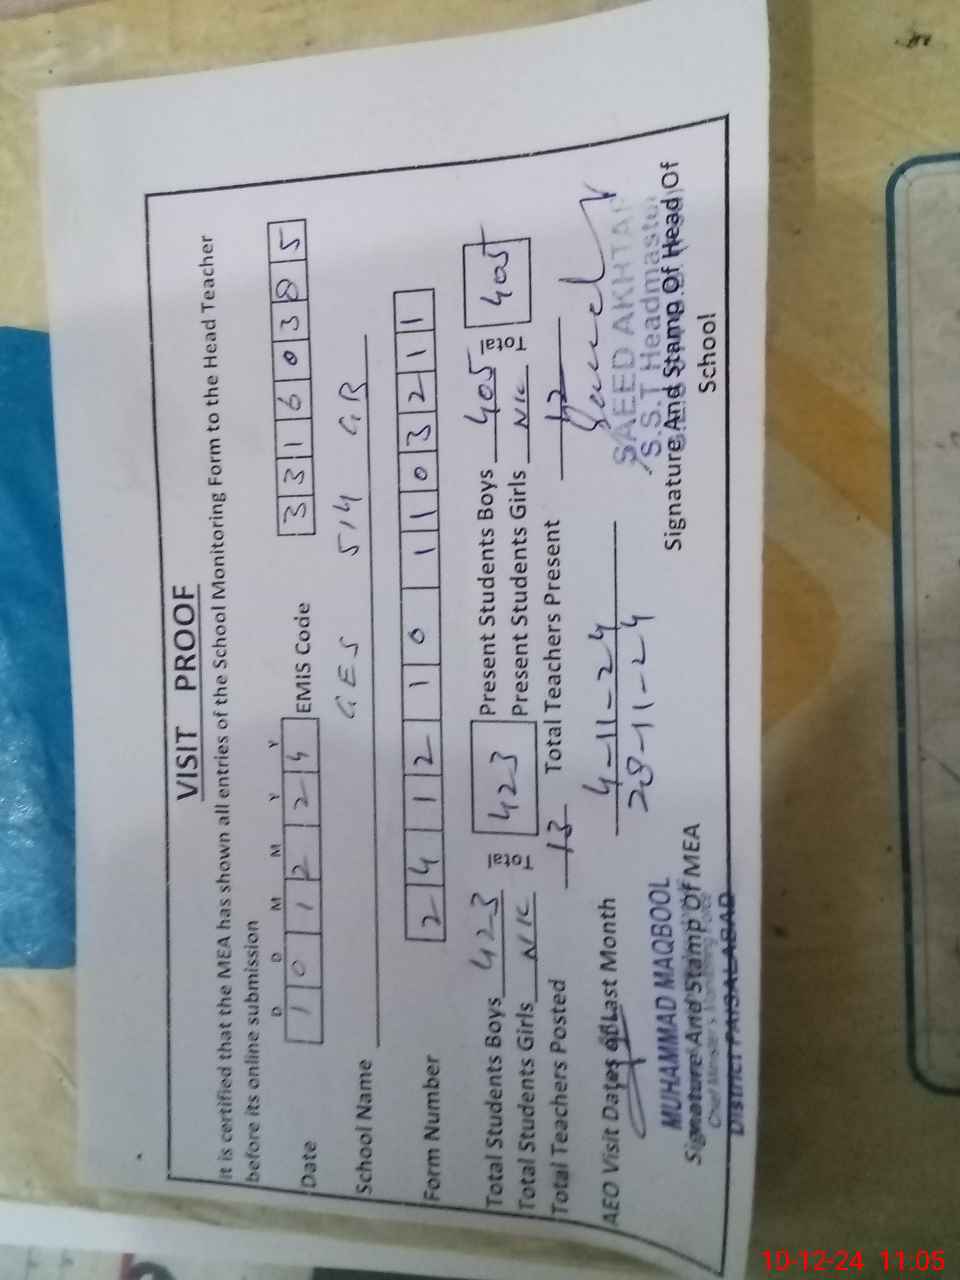 VISIT PROOF
It is certified that the MEA has shown all entries of the School Monitoring Form to the Head Teacher
before its online submission
D D M M Y Y
Date 1 0 1 2 2 4 EMIS Code 3 3 1 6 0 3 8 5
School Name GES 514 GB
Form Number 2 4 1 2 1 0 1 1 0 3 2 1 1
Total Students Boys 423 Total 423 Present Students Boys 405 Total 405
Total Students Girls NIL Present Students Girls NIL
Total Teachers Posted 13 Total Teachers Present 12
AEO Visit Dates of Last Month 4-11-24
28-11-24
MUHAMMAD MAQBOOL
Signature And Stamp Of MEA
Chief Minister's Monitoring Force
District FAISALABAD
SAEED AKHTAR
S.S.T Headmaster
Signature And Stamp Of Head Of
School
10-12-24 11:05